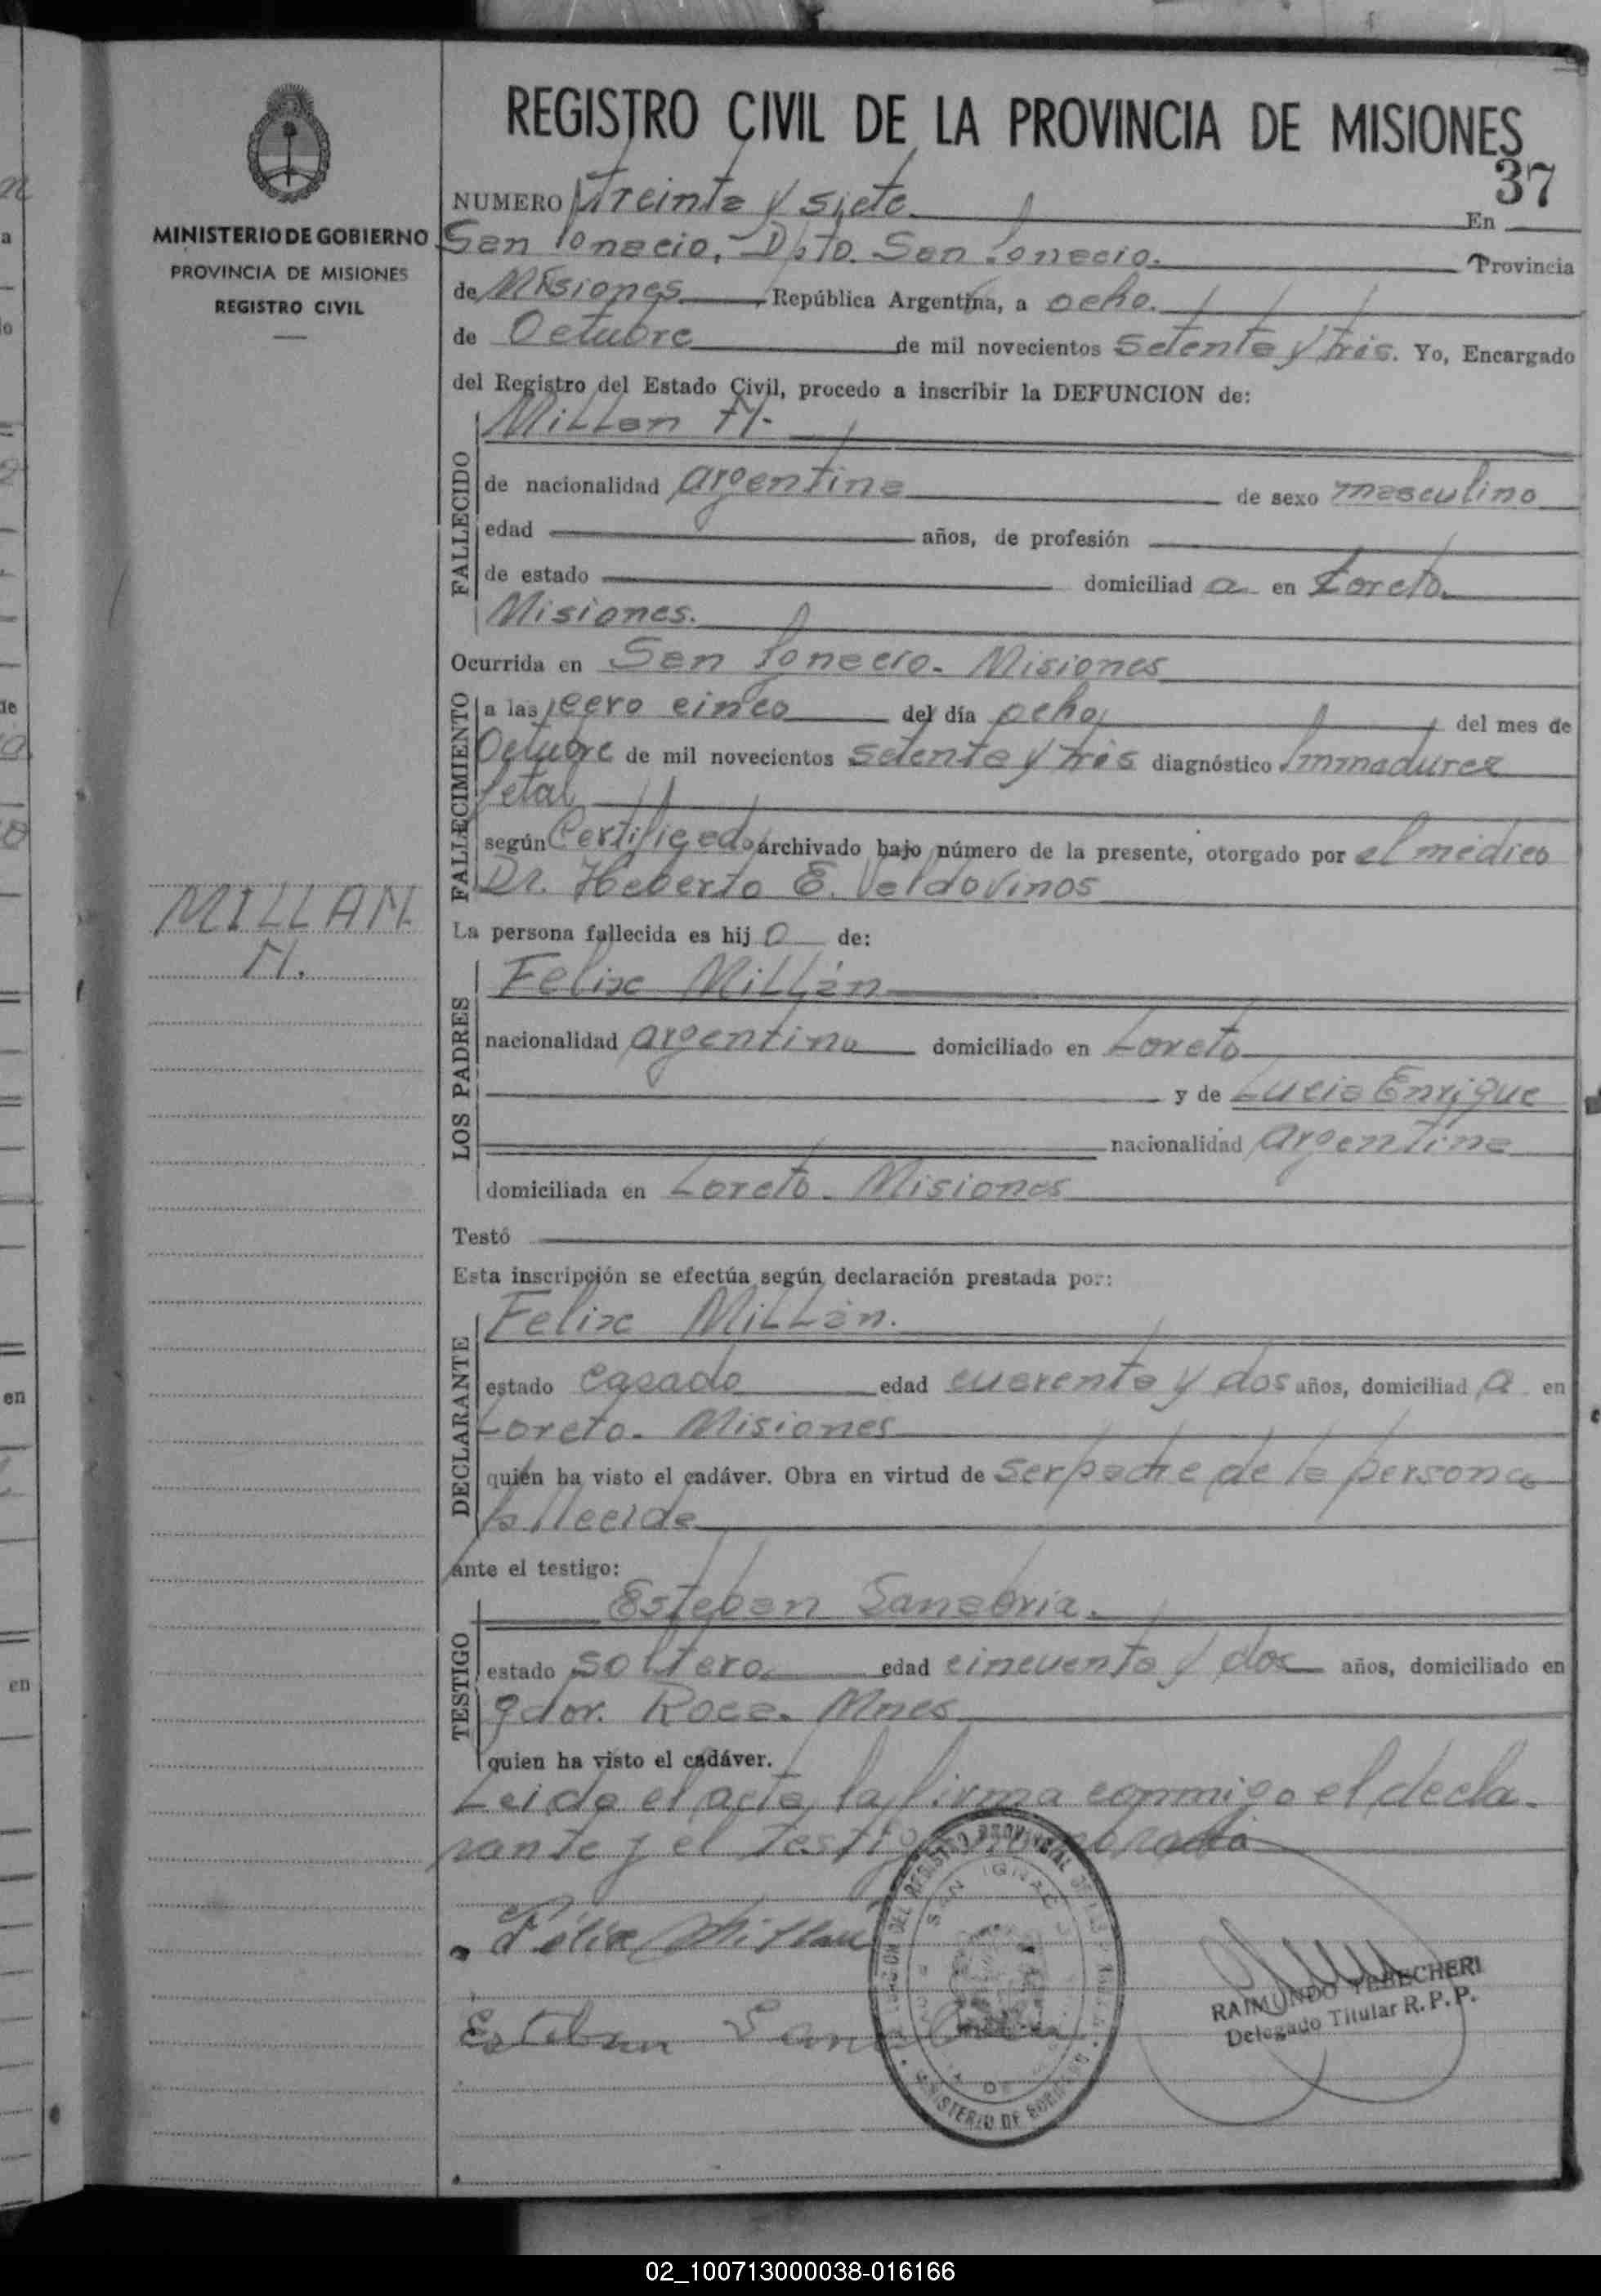 REGISTRO CIVIL DE LA PROVINCIA DE MISIONES
37
MINISTERIO DE GOBIERNO
PROVINCIA DE MISIONES
REGISTRO CIVIL
MILLAN
N.
NUMERO Treinta y siete. En
San Ignacio, Dpto. San Ignacio. Provincia
de Misiones, República Argentina, a ocho.
de Octubre de mil novecientos setenta y tres. Yo, Encargado
del Registro del Estado Civil, procedo a inscribir la DEFUNCION de:
Millan N.
FALLECIDO
de nacionalidad argentina de sexo masculino
edad años, de profesión
de estado domiciliad a en Loreto.
Misiones.
Ocurrida en San Ignacio. Misiones
FALLECIMIENTO
a las cero cinco del día ocho del mes de
Octubre de mil novecientos setenta y tres diagnóstico Inmadurez
fetal
según Certificado archivado bajo número de la presente, otorgado por el médico
Dr. Heberto E. Valdovinos
La persona fallecida es hij o de:
LOS PADRES
Felix Millán
nacionalidad argentina domiciliado en Loreto
y de Lucia Enrique
nacionalidad argentina
domiciliada en Loreto. Misiones
Testó
Esta inscripción se efectúa según declaración prestada por:
DECLARANTE
Felix Millán.
estado casado edad cuarenta y dos años, domiciliad a en
Loreto. Misiones
quién ha visto el cadáver. Obra en virtud de ser padre de la persona
fallecida
ante el testigo:
TESTIGO
Esteban Sanabria.
estado soltero. edad cincuenta y dos años, domiciliado en
gdor. Roca. Mnes
quien ha visto el cadáver.
Leida el acta, la firma conmigo el decla-
rante y el testigo
Félix Millan
Esteban
REGISTRO PROVINCIAL
SAN IGNACIO
MINISTERIO DE GOBIERNO
RAIMUNDO
Delegado Titular R. P. P.
02_100713000038-016166